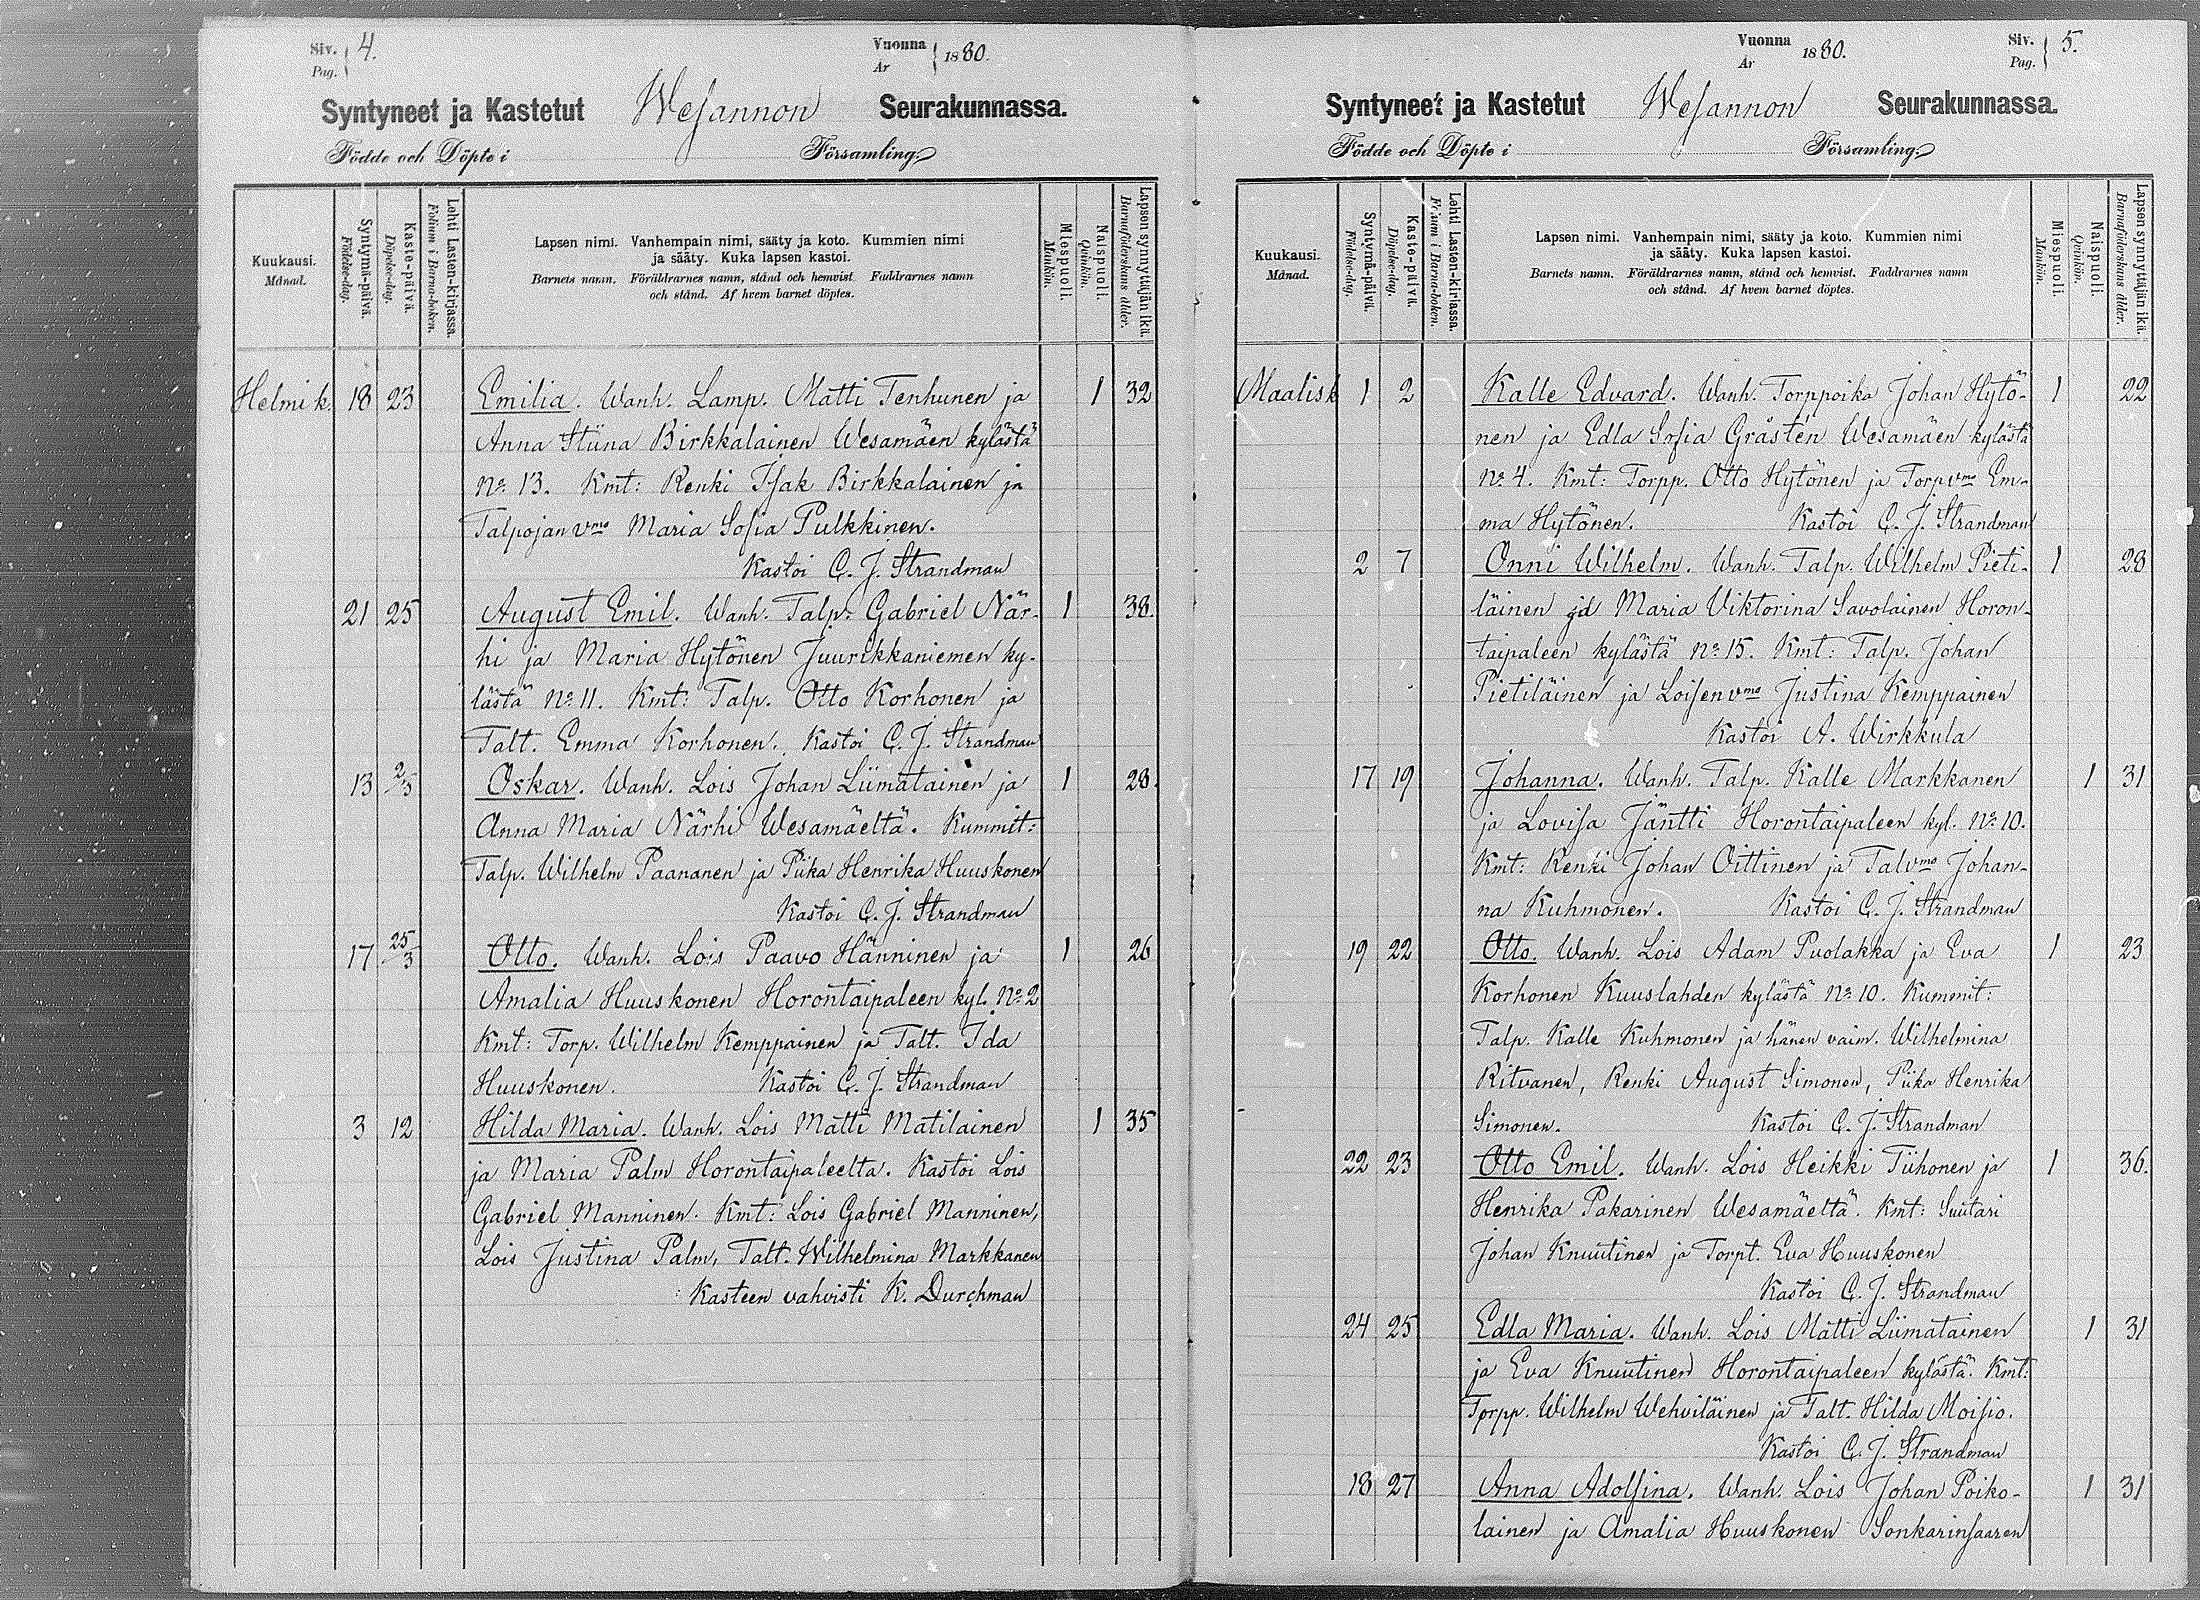 Siv. Pag. 4.
Vuonna År 1880.
Syntyneet ja Kastetut Wesannon Seurakunnassa.
Födde och Döpte i Församling.
Kuukausi. Månad.
Syntymä-päivä. Födelse-dag.
Kaste-päivä. Döpelse-dag.
Lehti Lasten-kirjassa. Folium i Barna-boken.
Lapsen nimi. Vanhempain nimi, sääty ja koto. Kummien nimi
ja sääty. Kuka lapsen kastoi.
Barnets namn. Föräldrarnes namn, stånd och hemvist. Faddrarnes namn
och stånd. Af hvem barnet döptes.
Miespuoli. Mankön.
Naispuoli. Qvinkön.
Lapsen synnyttäjän ikä. Barnaföderskans ålder.
Helmik. 18 23 Emilia. Wanh. Lamp. Matti Tenhunen ja 1 32
Anna Stiina Birkkalainen Wesamäen kylästä
No 13. Kmt: Renki Isak Birkkalainen ja
Talpojan vmo Maria Sofia Pulkkinen.
Kastoi C. J. Strandman
21 25 August Emil. Wanh. Talp. Gabriel När- 1 38.
hi ja Maria Hytönen Juurikkaniemen ky-
lästä No 11. Kmt: Talp. Otto Korhonen ja
Talt. Emma Korhonen. Kastoi C. J. Strandman
13 2/3 Oskar. Wanh. Lois Johan Liimatainen ja 1 28.
Anna Maria Närhi Wesamäeltä. Kummit:
Talp. Wilhelm Paananen ja Piika Henrika Huuskonen
Kastoi C. J. Strandman
17 25/3 Otto. Wanh. Lois Paavo Hänninen ja 1 26
Amalia Huuskonen Horontaipaleen kyl. No 2
Kmt: Torp. Wilhelm Kemppainen ja Talt. Ida
Huuskonen. Kastoi C. J. Strandman
3 12 Hilda Maria. Wanh. Lois Matti Matilainen 1 35
ja Maria Palm Horontaipaleelta. Kastoi Lois
Gabriel Manninen. Kmt: Lois Gabriel Manninen,
Lois Justina Palm, Talt. Wilhelmina Markkanen
Kasteen vahvisti K. Durchman
Vuonna År 1880.
Siv. Pag. 5.
Syntyneet ja Kastetut Wesannon Seurakunnassa.
Födde och Döpte i Församling.
Kuukausi. Månad.
Syntymä-päivä. Födelse-dag.
Kaste-päivä. Döpelse-dag.
Lehti Lasten-kirjassa. Folium i Barna-boken.
Lapsen nimi. Vanhempain nimi, sääty ja koto. Kummien nimi
ja sääty. Kuka lapsen kastoi.
Barnets namn. Föräldrarnes namn, stånd och hemvist. Faddrarnes namn
och stånd. Af hvem barnet döptes.
Miespuoli. Mankön.
Naispuoli. Qvinkön.
Lapsen synnyttäjän ikä. Barnaföderskans ålder.
Maalisk 1 2 Kalle Edvard. Wanh. Torppoika Johan Hytö- 1 22
nen ja Edla Sofia Gråsten Wesamäen kylästä
No 4. Kmt: Torpp. Otto Hytönen ja Torp vmo Em-
ma Hytönen. Kastoi C. J. Strandman
2 7 Onni Wilhelm. Wanh. Talp. Wilhelm Pieti- 1 28
läinen ja Maria Viktorina Savolainen Horon-
taipaleen kylästä No 15. Kmt: Talp. Johan
Pietiläinen ja Loisen vmo Justina Kemppainen
Kastoi A. Wirkkula
17 19 Johanna. Wanh. Talp. Kalle Markkanen 1 31
ja Lovisa Jäntti Horontaipaleen kyl. No 10.
Kmt: Renki Johan Oittinen ja Tal vmo Johan-
na Kuhmonen. Kastoi C. J. Strandman
19 22 Otto. Wanh. Lois Adam Puolakka ja Eva 1 23
Korhonen Kuuslahden kylästä No 10. Kummit:
Talp. Kalle Kuhmonen ja hänen vaim. Wilhelmina
Ritvanen, Renki August Simonen, Piika Henrika
Simonen. Kastoi C. J. Strandman
22 23 Otto Emil. Wanh. Lois Heikki Tiihonen ja 1 36.
Henrika Pakarinen Wesamäeltä. Kmt: Suutari
Johan Knuutinen ja Torpt. Eva Huuskonen
Kastoi C. J. Strandman
24 25 Edla Maria. Wanh. Lois Matti Liimatainen 1 31
ja Eva Knuutinen Horontaipaleen kylästä. Kmt:
Torpp. Wilhelm Wehviläinen ja Talt. Hilda Moisio.
Kastoi C. J. Strandman
18 27 Anna Adolfina. Wanh. Lois Johan Poiko- 1 31
lainen ja Amalia Huuskonen Sonkarinsaaren